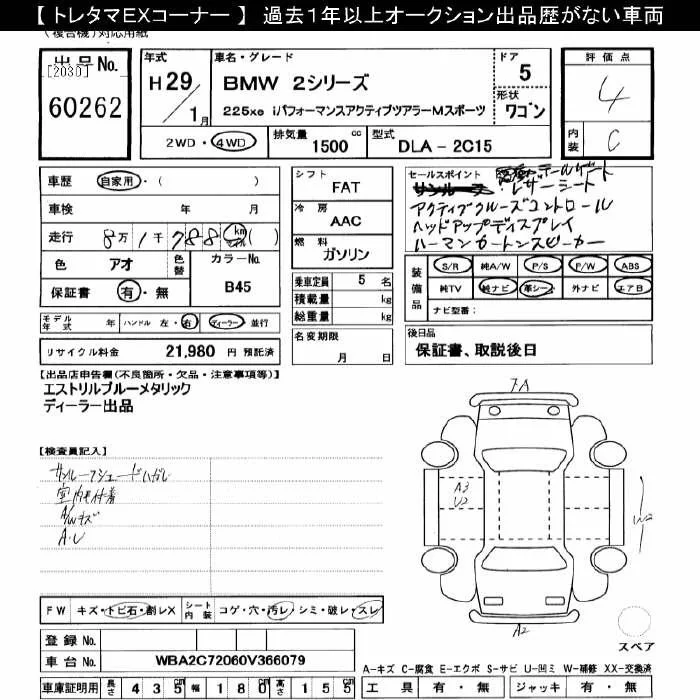 【 トレタマEXコーナー 】 過去1年以上オークション出品歴がない車両
(複合機)対応用紙
出品No.
[2030]
60262
年式
H 29/1月
車名・グレード
BMW 2シリーズ
225xe iパフォーマンスアクティブツアラーMスポーツ
ドア 5
形状 ワゴン
2WD・4WD
排気量 1500 cc
型式 DLA - 2C15
評価点
4
内装 C
車歴 自家用・( )
車検 年 月
走行 8万1千788 km マイル ( )
色 アオ
色替
カラーNo.
B45
保証書 有・無
シフト FAT
冷房 AAC
燃料 ガソリン
乗車定員 5 名
積載量 kg
総重量 kg
名変期限
月 日
セールスポイント
テールゲート
サンルーフ レザーシート
アクティブクルーズコントロール
ヘッドアップディスプレイ
ハーマンカードンスピーカー
装備品
S/R 純A/W P/S P/W ABS
純TV 純ナビ 革シート 外ナビ エアB
ナビ型番:
モデル年式 年 ハンドル 左・右 ディーラー・並行
リサイクル料金 21,980 円 預託済
後日品
保証書、取説後日
【出品店申告欄(不良箇所・欠品・注意事項等)】
エストリルブルーメタリック
ディーラー出品
【検査員記入】
サンルーフシェードハガレ
室内毛付着
A/Wキズ
A・U
FA
A3
U2
W2
A2
スペア
FW キズ・トビ石・割レX
シート内装 コゲ・穴・汚レ・シミ・破レ・スレ
登録 No.
車台 No. WBA2C72060V366079
車庫証明用 長さ 435 cm 幅 180 cm 高さ 155 cm
A-キズ C-腐食 E-エクボ S-サビ U-凹ミ W-補修 XX-交換済
工具 有・無 ジャッキ 有・無